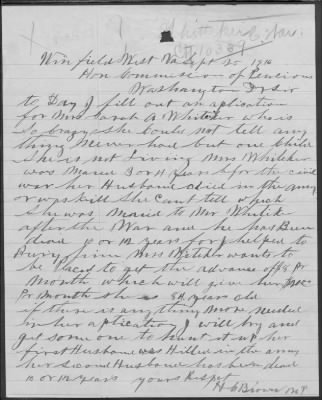 Whittaker, Nar.
Win field West Va Sept 20 1916
Hon Commission of Pensions
Washington D Sir
to Day I fill out an aplication
for Mrs Sarah A Whiteker who is
So crazy she Could not tell any
thing Never had but one Child
She is not Living Mrs Whiteker
was Maried 3 or 4 years before the civil
war her Husband died in the army
or was kill She Can't tell which
She was Maried to Mr Whitiker
after the War and he has Been
dead 10 or 12 years for I helped to
Bury him Mrs Whiteker wants to
be placed to get the advance of 8 Pr
Month which will give her $20.00
Pr Month she is 84 years old
if there is any thing More needed
in her aplication I will try and
get some one to hunt it up her
first Husband was Killed in the army
her Second Husband has been dead
10 or 12 years yours Respect
H C Brown